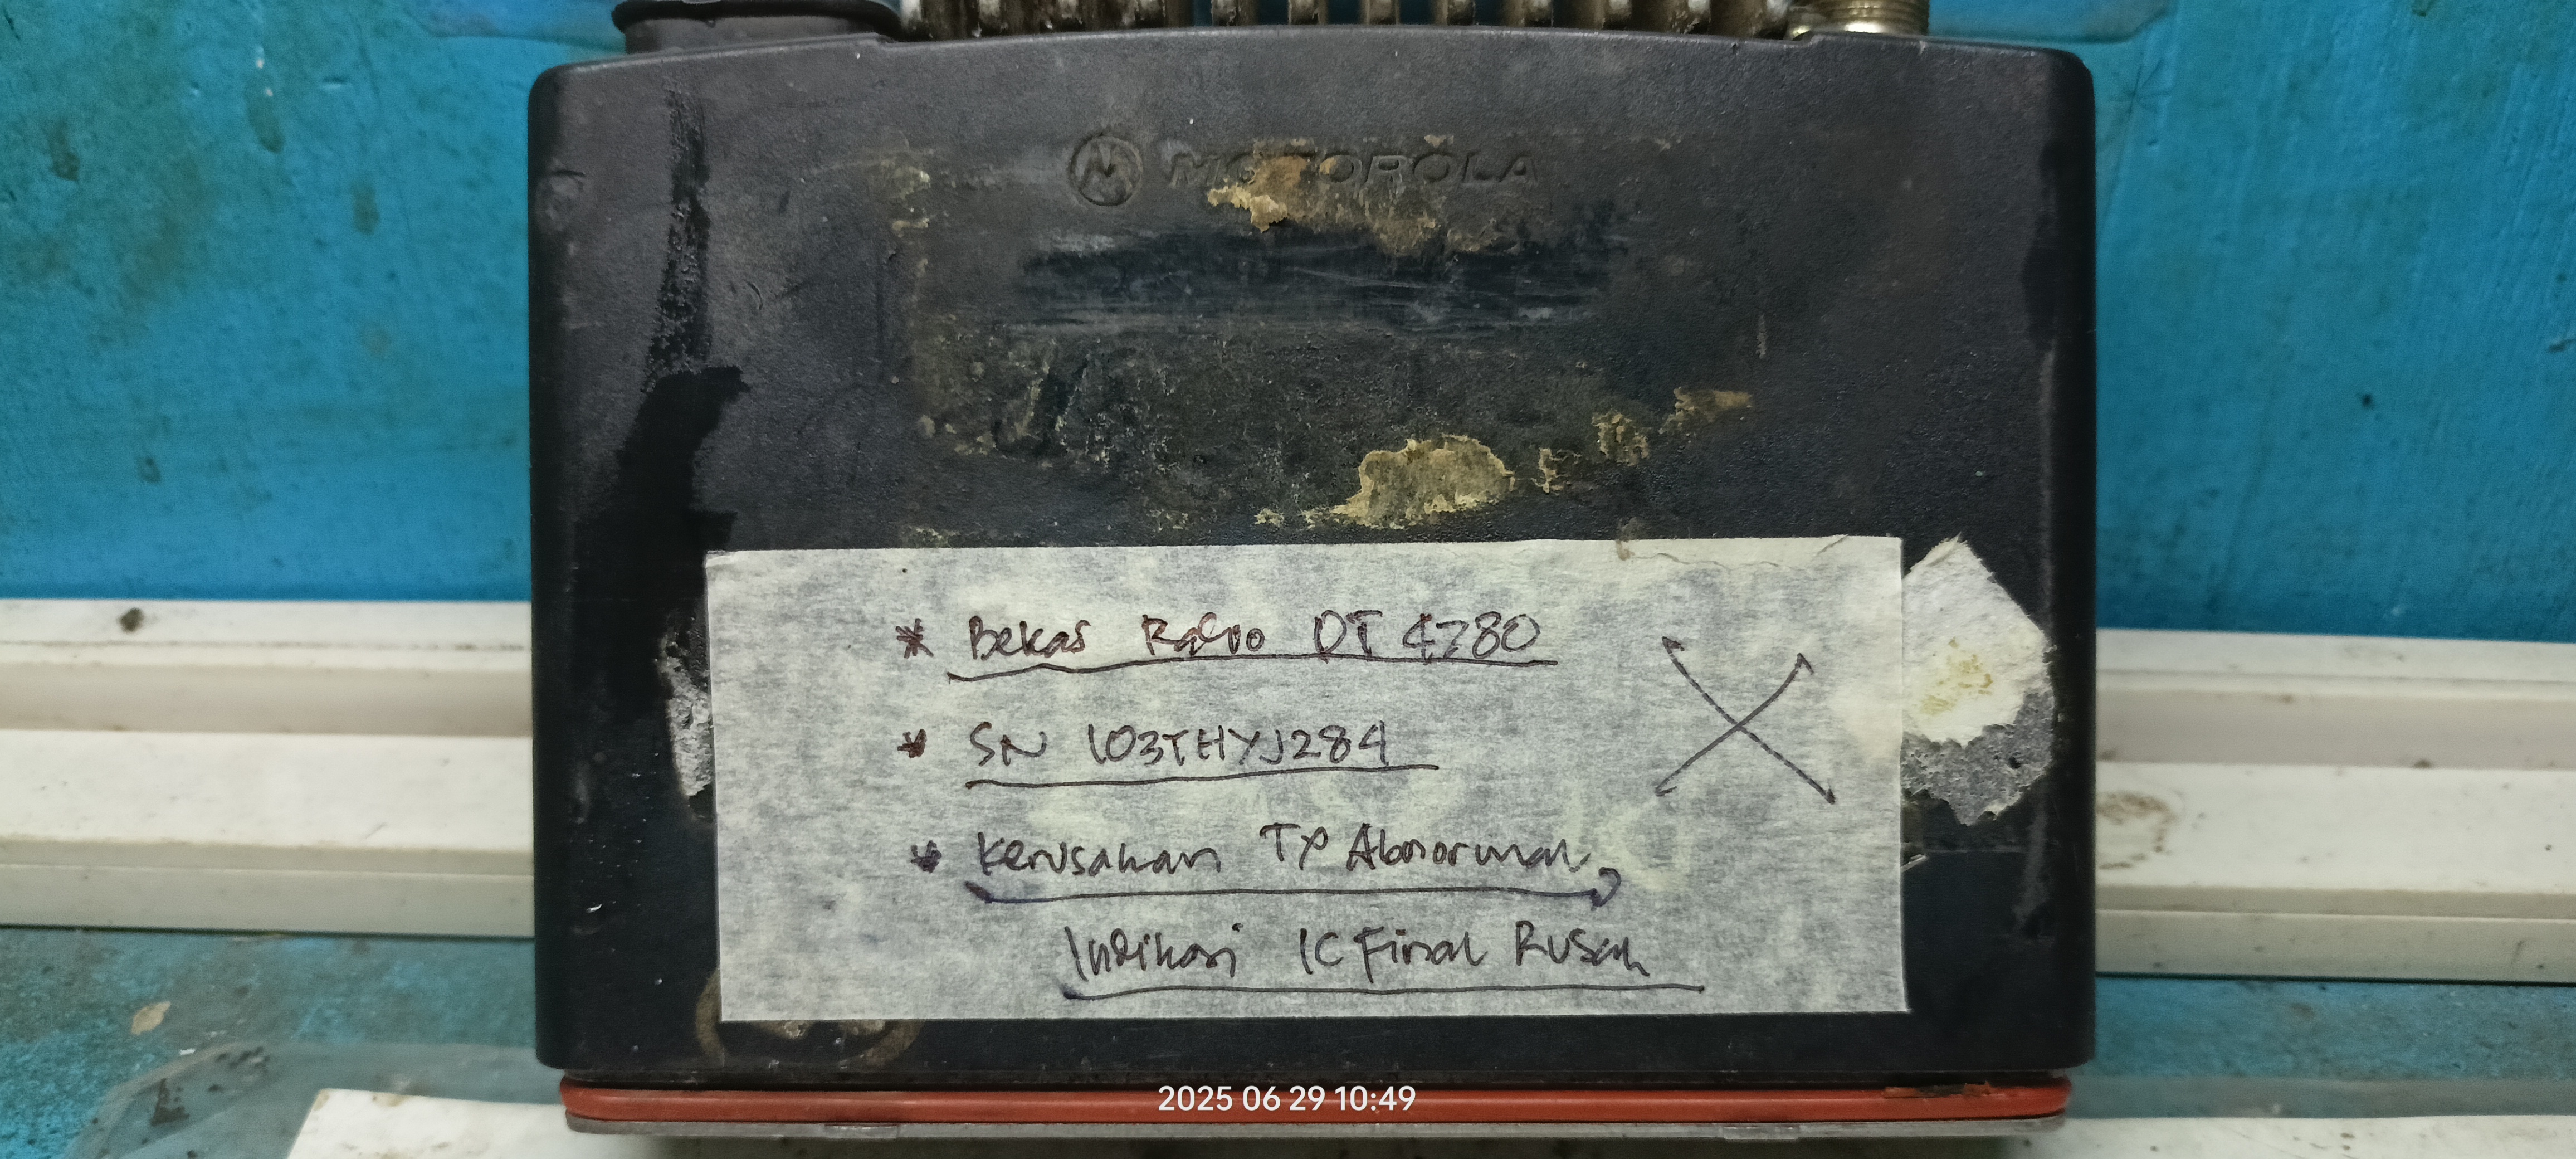 MOTOROLA
* Bekas Radio DT 4280
* SN 103THYJ284
* Kerusakan TX Abnormal,
Indikasi IC Final Rusak
2025 06 29 10:49